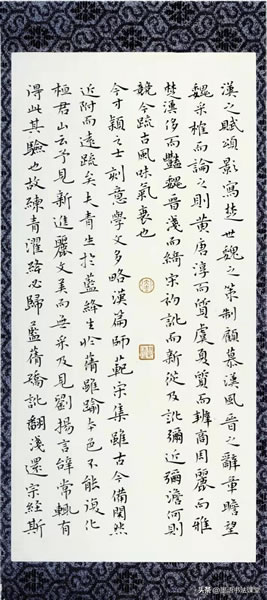 漢之賦頌影寫楚世魏之策制顧慕漢風晉之辭章瞻望
魏采搉而論之則黃唐淳而質虞夏質而辨商周麗而雅
楚漢侈而豔魏晉淺而綺宋初訛而新從及訛彌近彌澹何則
競今疏古風味氣衰也
今才穎之士刻意學文多略漢篇師範宋集雖古今備閱然
近附而遠疏矣夫青生於藍絳生於蒨雖踰本色不能復化
桓君山云予見新進麗文美而無采及見劉揚言辭常輒有
得此其驗也故練青濯絳必歸藍蒨矯訛翻淺還宗經斯